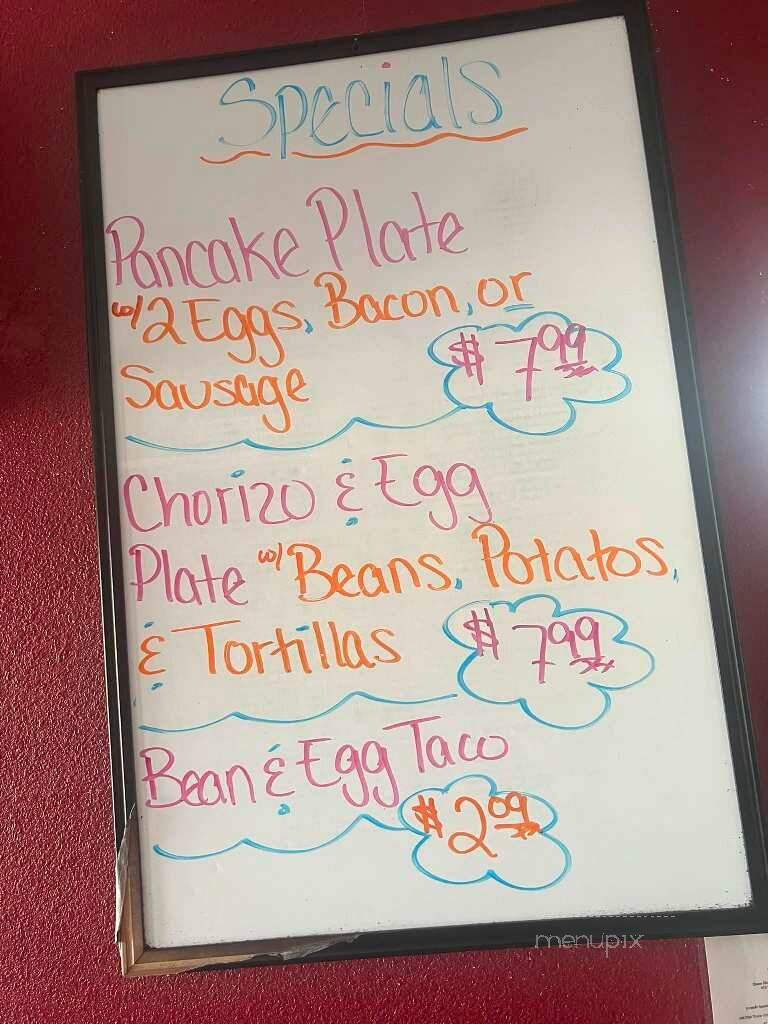 Specials
Pancake Plate
w/ 2 Eggs, Bacon, or
Sausage $7.99
Chorizo & Egg
Plate w/ Beans, Potatos,
& Tortillas $7.99
Bean & Egg Taco
$2.09
menupix